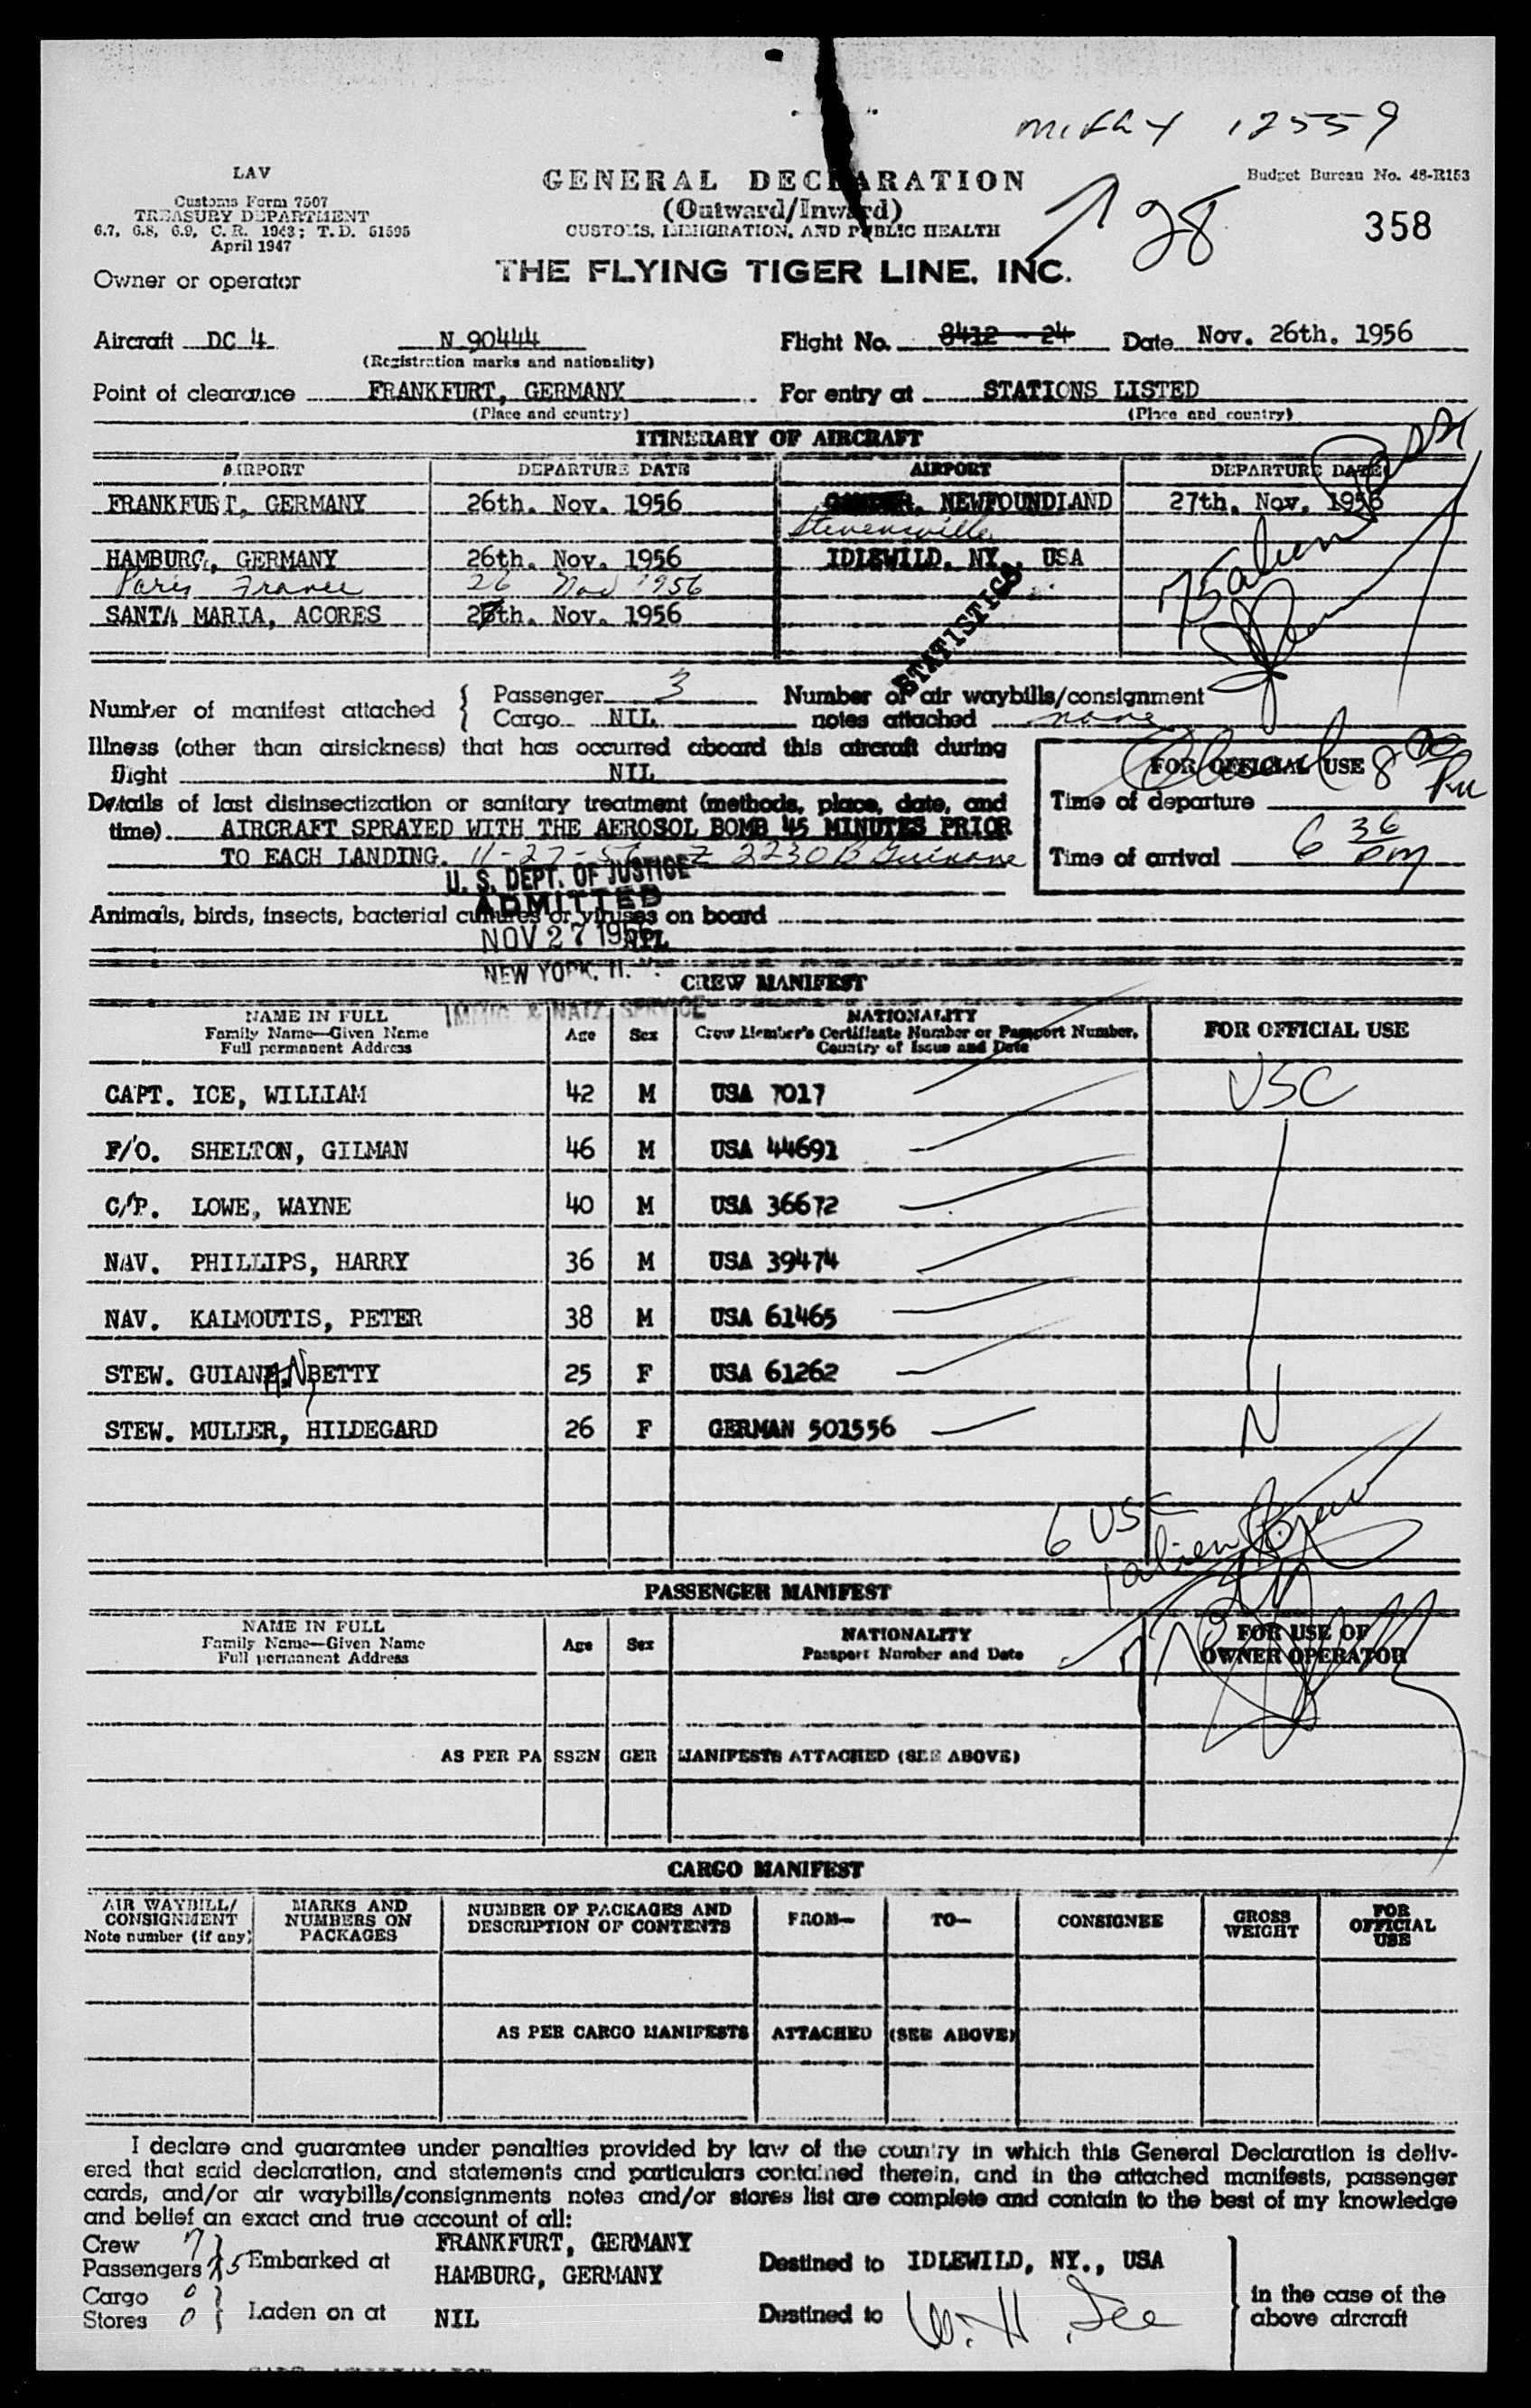 12559
LAV
Customs Form 7507
TREASURY DEPARTMENT
6.7, 6.8, 6.9, C. R. 1943; T. D. 51595
April 1947
GENERAL DECLARATION
(Outward/Inward)
CUSTOMS, IMMIGRATION, AND PUBLIC HEALTH
Budget Bureau No. 48-R153
28
358
Owner or operator
THE FLYING TIGER LINE, INC.
Aircraft DC 4 N 90444 Flight No. 8412 - 24 Date Nov. 26th. 1956
(Registration marks and nationality)
Point of clearance FRANKFURT, GERMANY For entry at STATIONS LISTED
(Place and country) (Place and country)
ITINERARY OF AIRCRAFT
AIRPORT DEPARTURE DATE AIRPORT DEPARTURE DATE
FRANKFURT, GERMANY 26th. Nov. 1956 NEWFOUNDLAND 27th. Nov. 1956
Stevensville
HAMBURG, GERMANY 26th. Nov. 1956 IDLEWILD, NY., USA
Paris France 26 Nov 1956
SANTA MARIA, ACORES 27th. Nov. 1956
75 alien
STATISTICS
Number of manifest attached { Passenger 3 Number of air waybills/consignment
Cargo NIL notes attached none
Illness (other than airsickness) that has occurred aboard this aircraft during
flight NIL
FOR OFFICIAL USE 8 00 Pm
Details of last disinsectization or sanitary treatment (methods, place, date, and
Time of departure
time). AIRCRAFT SPRAYED WITH THE AEROSOL BOMB 45 MINUTES PRIOR
TO EACH LANDING. 11-27-56 Z 2230 B Guinane
Time of arrival 6 36 pm
U. S. DEPT. OF JUSTICE
ADMITTED
Animals, birds, insects, bacterial cultures or viruses on board
NOV 27 1956
NEW YORK, N. Y.
IMMIG. & NATZ. SERVICE
CREW MANIFEST
NAME IN FULL
Family Name—Given Name
Full permanent Address
Age Sex
NATIONALITY
Crew Member's Certificate Number or Passport Number,
Country of Issue and Date
FOR OFFICIAL USE
CAPT. ICE, WILLIAM 42 M USA 7017 USC
F/O. SHELTON, GILMAN 46 M USA 44691
C/P. LOWE, WAYNE 40 M USA 36672
NAV. PHILLIPS, HARRY 36 M USA 39474
NAV. KALMOUTIS, PETER 38 M USA 61465
STEW. GUIANAN, BETTY 25 F USA 61262
STEW. MULLER, HILDEGARD 26 F GERMAN 501556
6 USC
1 alien Crew
PASSENGER MANIFEST
NAME IN FULL
Family Name—Given Name
Full permanent Address
Age Sex
NATIONALITY
Passport Number and Date
FOR USE OF
OWNER OPERATOR
AS PER PASSENGER MANIFESTS ATTACHED (SEE ABOVE)
CARGO MANIFEST
AIR WAYBILL/
CONSIGNMENT
Note number (if any)
MARKS AND
NUMBERS ON
PACKAGES
NUMBER OF PACKAGES AND
DESCRIPTION OF CONTENTS
FROM— TO— CONSIGNEE
GROSS
WEIGHT
FOR
OFFICIAL
USE
AS PER CARGO MANIFESTS ATTACHED (SEE ABOVE)
I declare and guarantee under penalties provided by law of the country in which this General Declaration is deliv-
ered that said declaration, and statements and particulars contained therein, and in the attached manifests, passenger
cards, and/or air waybills/consignments notes and/or stores list are complete and contain to the best of my knowledge
and belief an exact and true account of all:
Crew 7 FRANKFURT, GERMANY
Passengers 75 Embarked at HAMBURG, GERMANY Destined to IDLEWILD, NY., USA
Cargo 0 in the case of the
Stores 0 Laden on at NIL Destined to W. H. See above aircraft